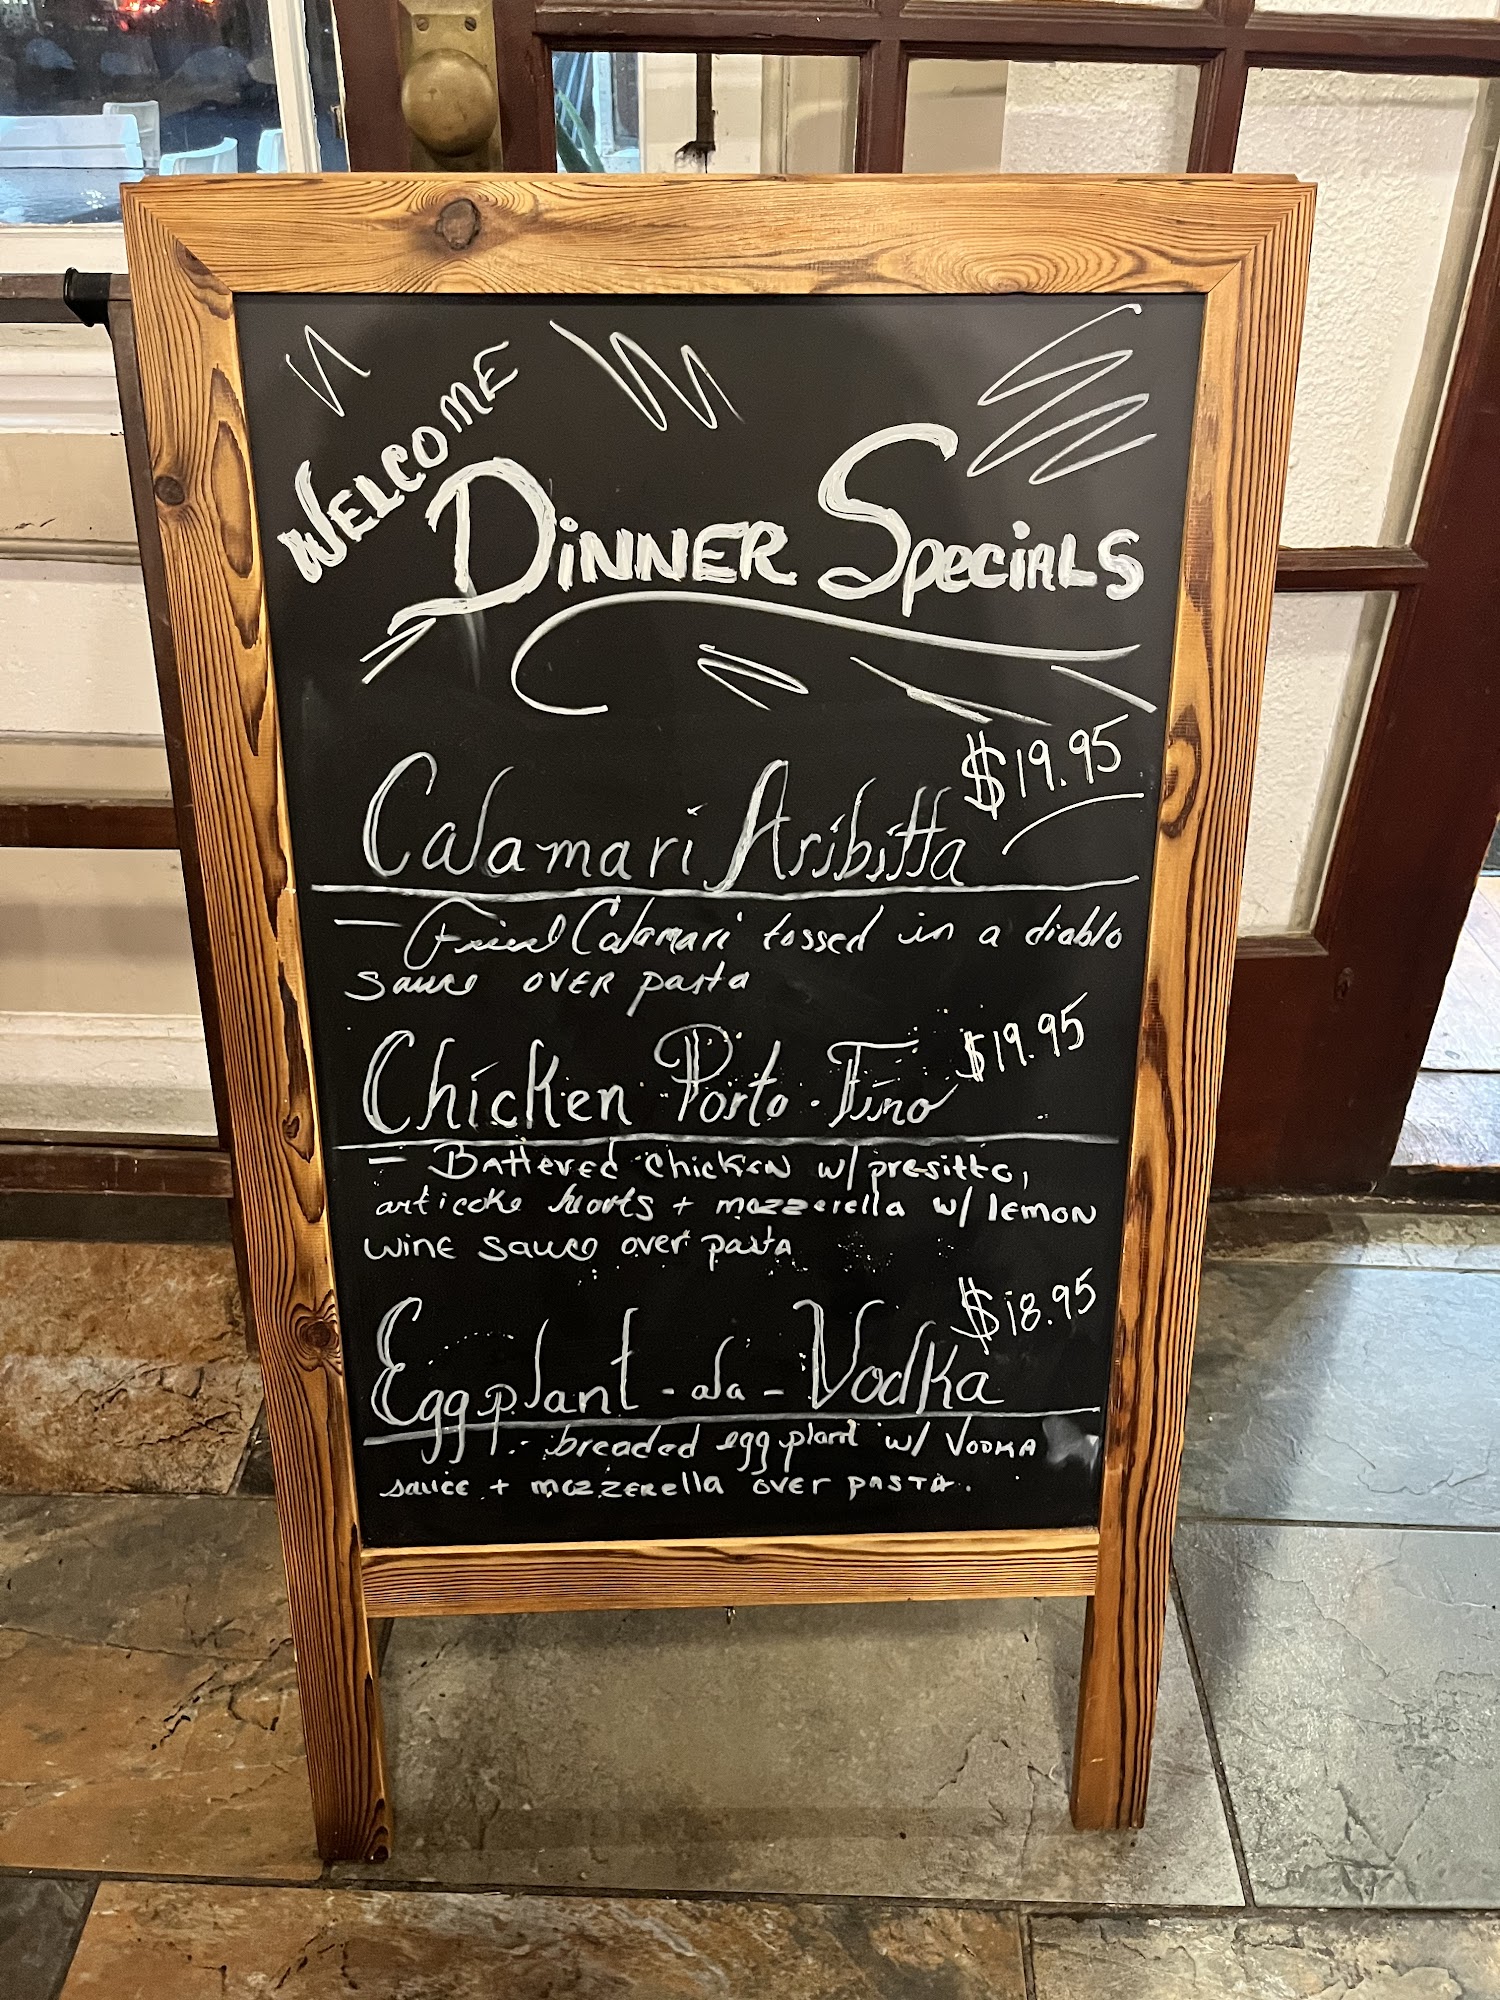 WELCOME
DINNER SPECIALS
$19.95
Calamari Aribitta
- Fried Calamari tossed in a diablo
sauce OVER pasta
$19.95
Chicken Porto-Fino
- Battered chicken w/ presitto,
articoke hearts + mozzarella w/ lemon
wine sauce over pasta
$18.95
Eggplant-ala-Vodka
- breaded eggplant w/ Vodka
sauce + mozzerella over pasta.